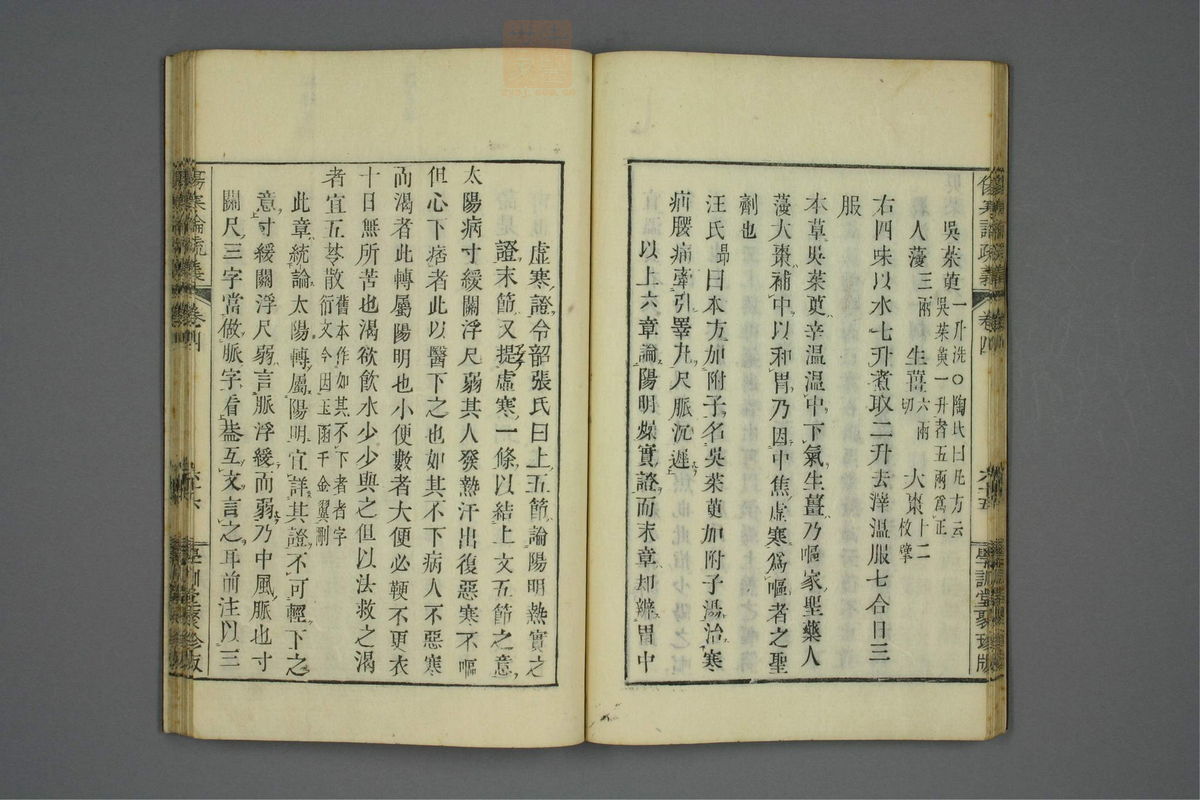 傷寒論疏義 卷四 六十五 學訓堂聚珍版
吳茱萸一升洗○陶氏曰凡方云吳茱萸一升者五兩爲正
人薓三兩 生薑六兩切 大棗十二枚擘
右四味以水七升煮取二升去滓溫服七合日三
服
本草吳茱萸辛溫溫中下氣生薑乃嘔家聖藥人
薓大棗補中以和胃乃因中焦虛寒爲嘔者之聖
劑也
汪氏昂曰本方加附子名吳茱萸加附子湯治寒
疝腰痛牽引睪丸尺脈沉遲
以上六章論陽明燥實證而末章却辨胃中
虛寒證令韶張氏曰上五節論陽明熱實之
證末節又提虛寒一條以結上文五節之意
太陽病寸緩關浮尺弱其人發熱汗出復惡寒不嘔
但心下痞者此以醫下之也如其不下病人不惡寒
而渴者此轉屬陽明也小便數者大便必鞕不更衣
十日無所苦也渴欲飲水少少與之但以法救之渴
者宜五苓散舊本作如其不下者者字衍文今因玉函千金翼刪
此章統論太陽轉屬陽明宜詳其證不可輕下之
意寸緩關浮尺弱言脈浮緩而弱乃中風脈也寸
關尺三字當做脈字看蓋互文言之耳前注以三
傷寒論疏義 卷四 六十六 學訓堂聚珍版